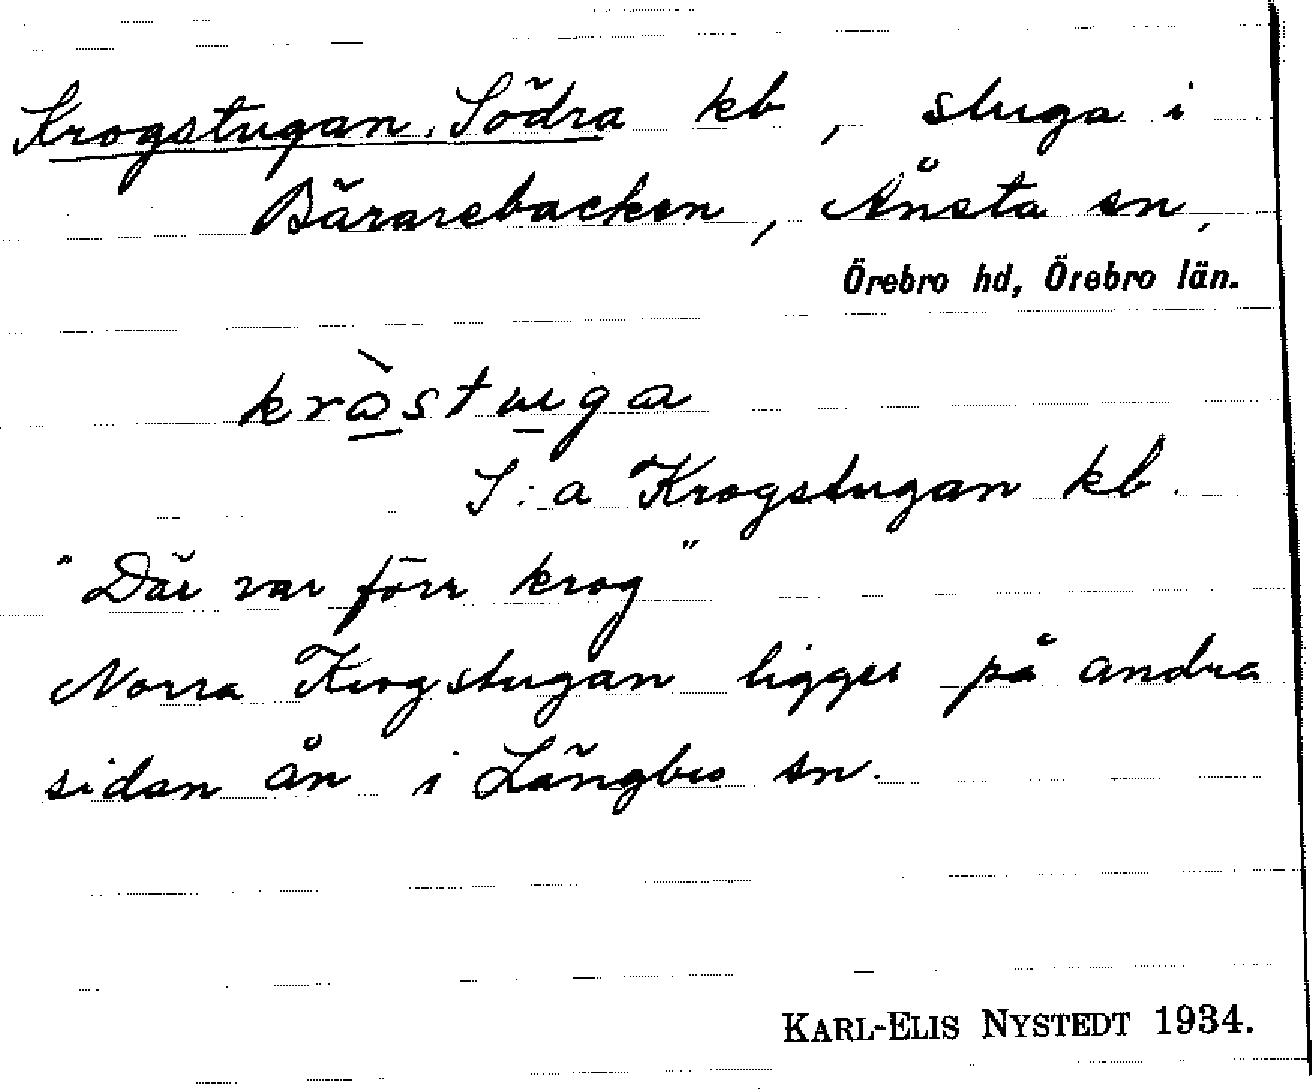 Krogstugan, Södra kb, stuga i
Bärarebacken, Ånsta sn,
Örebro hd, Örebro län.
kràstuga
S:a Krogstugan kb.
"Där var förr krog"
Norra Krogstugan ligger på andra
sidan ån i Längbro sn.
KARL-ELIS NYSTEDT 1934.